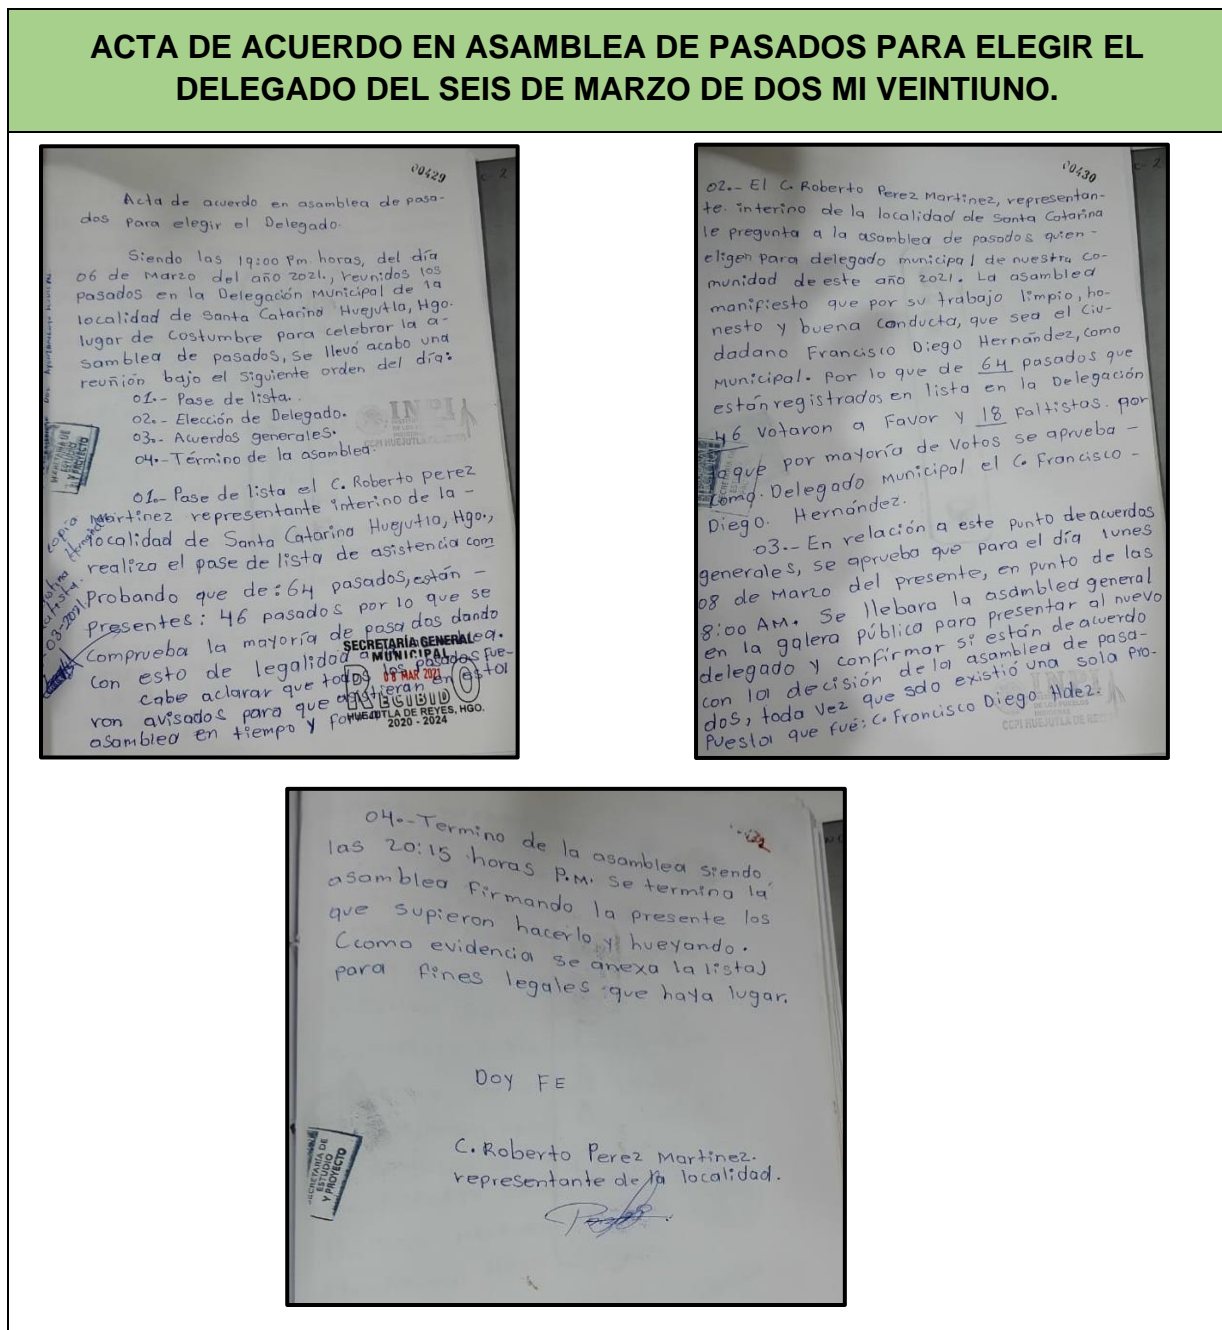 ACTA DE ACUERDO EN ASAMBLEA DE PASADOS PARA ELEGIR EL
DELEGADO DEL SEIS DE MARZO DE DOS MI VEINTIUNO.
00429
Acta de acuerdo en asamblea de pasa-
dos para elegir el Delegado.
Siendo las 19:00 Pm. horas, del día
06 de Marzo del año 2021., reunidos los
pasados en la Delegación Municipal de la
localidad de Santa Catarina Huejutla, Hgo.
lugar de Costumbre para celebrar la a-
samblea de pasados, se llevó acabo una
reuñión bajo el siguiente orden del día:
01.- Pase de lista.
02.- Elección de Delegado.
03.- Acuerdos generales.
04.- Término de la asamblea.
INPI
CCPI HUEJUTLA
SECRETARÍA DE
ESTUDIO
Y PROYECTO
01.- Pase de lista el C. Roberto perez
Martinez representante interino de la -
localidad de Santa Catarina Huejutla, Hgo.,
realiza el pase de lista de asistencia com
Probando que de: 64 pasados, están -
Presentes: 46 pasados por lo que se
comprueba la mayoría de pasados dando
con esto de legalidad a la asamblea.
Cabe aclarar que todos los pasados fue-
ron avisados para que asistieran en esta
asamblea en tiempo y forma
copia
SECRETARÍA GENERAL
MUNICIPAL
08 MAR 2021
RECIBIDO
HUEJUTLA DE REYES, HGO.
2020 - 2024
00430
02.- El C. Roberto Perez Martinez, representan-
te interino de la localidad de Santa Catarina
le pregunta a la asamblea de pasados quien -
eligen para delegado municipal de nuestra co-
munidad de este año 2021. La asamblea
manifiesto que por su trabajo limpio, ho-
nesto y buena conducta, que sea el Ciu-
dadano Francisco Diego Hernández, como
Municipal. Por lo que de 64 pasados que
están registrados en lista en la Delegación
46 votaron a Favor y 18 Faltistas. por
laque por mayoría de Votos se aprueba -
como. Delegado Municipal el C. Francisco -
Diego. Hernández.
03.- En relación a este punto deacuerdos
generales, se aprueba que para el día lunes
08 de Marzo del presente, en punto de las
8:00 AM. Se llebara la asamblea general
en la galera pública para presentar al nuevo
delegado y confirmar si están deacuerdo
con la decisión de la asamblea de pasa-
dos, toda vez que solo existió una sola pro-
Puesta que fué: C. Francisco Diego Hdez.
INPI
CCPI HUEJUTLA DE REYES
04.- Termino de la asamblea siendo
las 20:15 horas P.M. se termina la
asamblea firmando la presente los
que supieron hacerlo y hueyando.
(como evidencia se anexa la lista)
para fines legales que haya lugar.
DOY FE
C. Roberto Perez Martinez.
representante de la localidad.
SECRETARÍA DE
ESTUDIO
Y PROYECTO